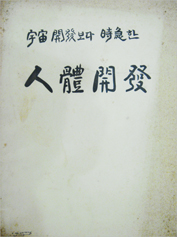 宇宙開發보다 時急한
人體開發